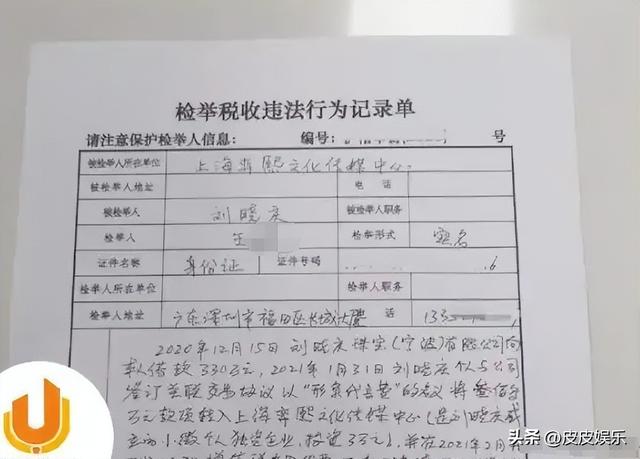 检举税收违法行为记录单
请注意保护检举人信息: 编号: 号
被检举人所在单位 上海弈熙文化传媒中心
被检举人地址 电话
被检举人 刘晓庆 被检举人职务
检举人 王 检举形式 实名
证件名称 身份证 证件号码 6
检举人所在单位 检举人职务
检举人地址 广东深圳市福田区长城大厦 话 133
2020年12月15日刘晓庆珠宝(宁波)有限公司向
本人借款330万, 2021年1月31日刘晓庆个人与公司
签订关联交易协议以“形象代言费”的名义将叁佰
万元款项转入上海弈熙文化传媒中心(是刘晓庆成
立的小微个人独资企业,投资3万元),并在2021年2月
头条 @皮皮娱乐